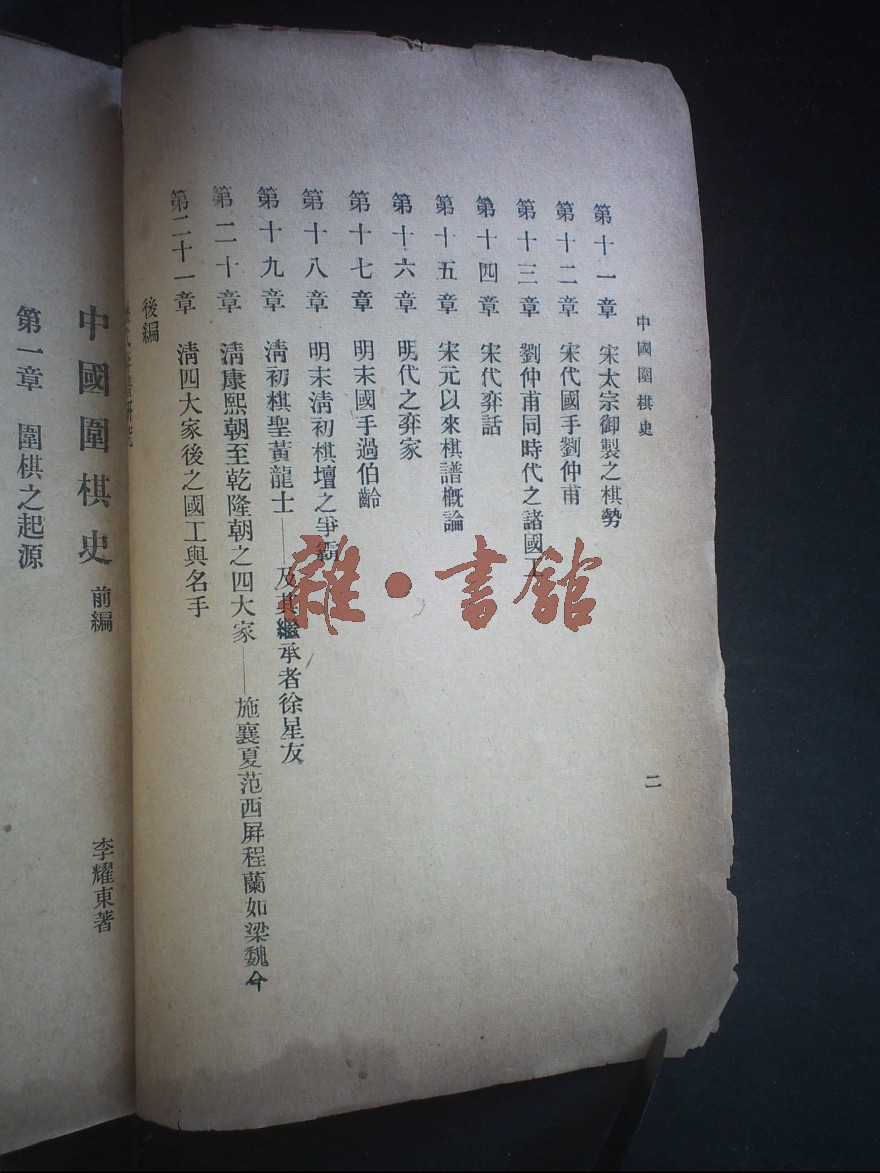 中國圍棋史
二
第十一章 宋太宗御製之棋勢
第十二章 宋代國手劉仲甫
第十三章 劉仲甫同時代之諸國工
第十四章 宋代弈話
第十五章 宋元以來棋譜概論
第十六章 明代之弈家
第十七章 明末國手過伯齡
第十八章 明末清初棋壇之爭霸
第十九章 清初棋聖黃龍士——及其繼承者徐星友
第二十章 清康熙朝至乾隆朝之四大家——施襄夏范西屏程蘭如梁魏今
第二十一章 清四大家後之國工與名手
後編
中國圍棋史 前編
李耀東著
第一章 圍棋之起源
雜·書館